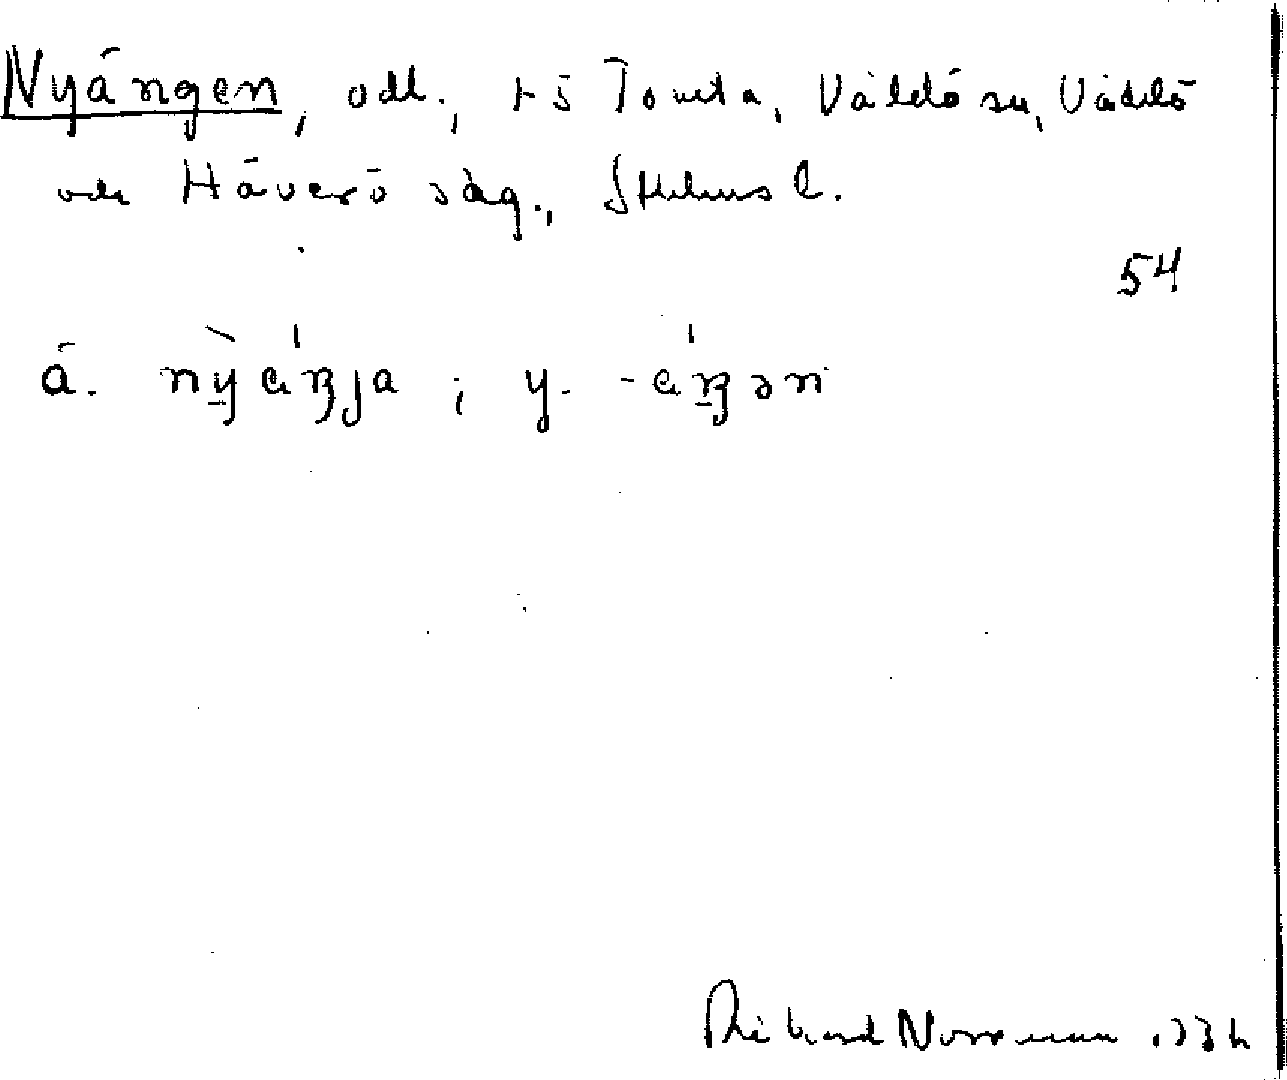 Nyängen, odl., t.ö Tomta, Väddö sn, Väddö
och Häverö skg., Sthlms l.
54
ä. nỳäŋja; y. -äŋən
Richard Norrman